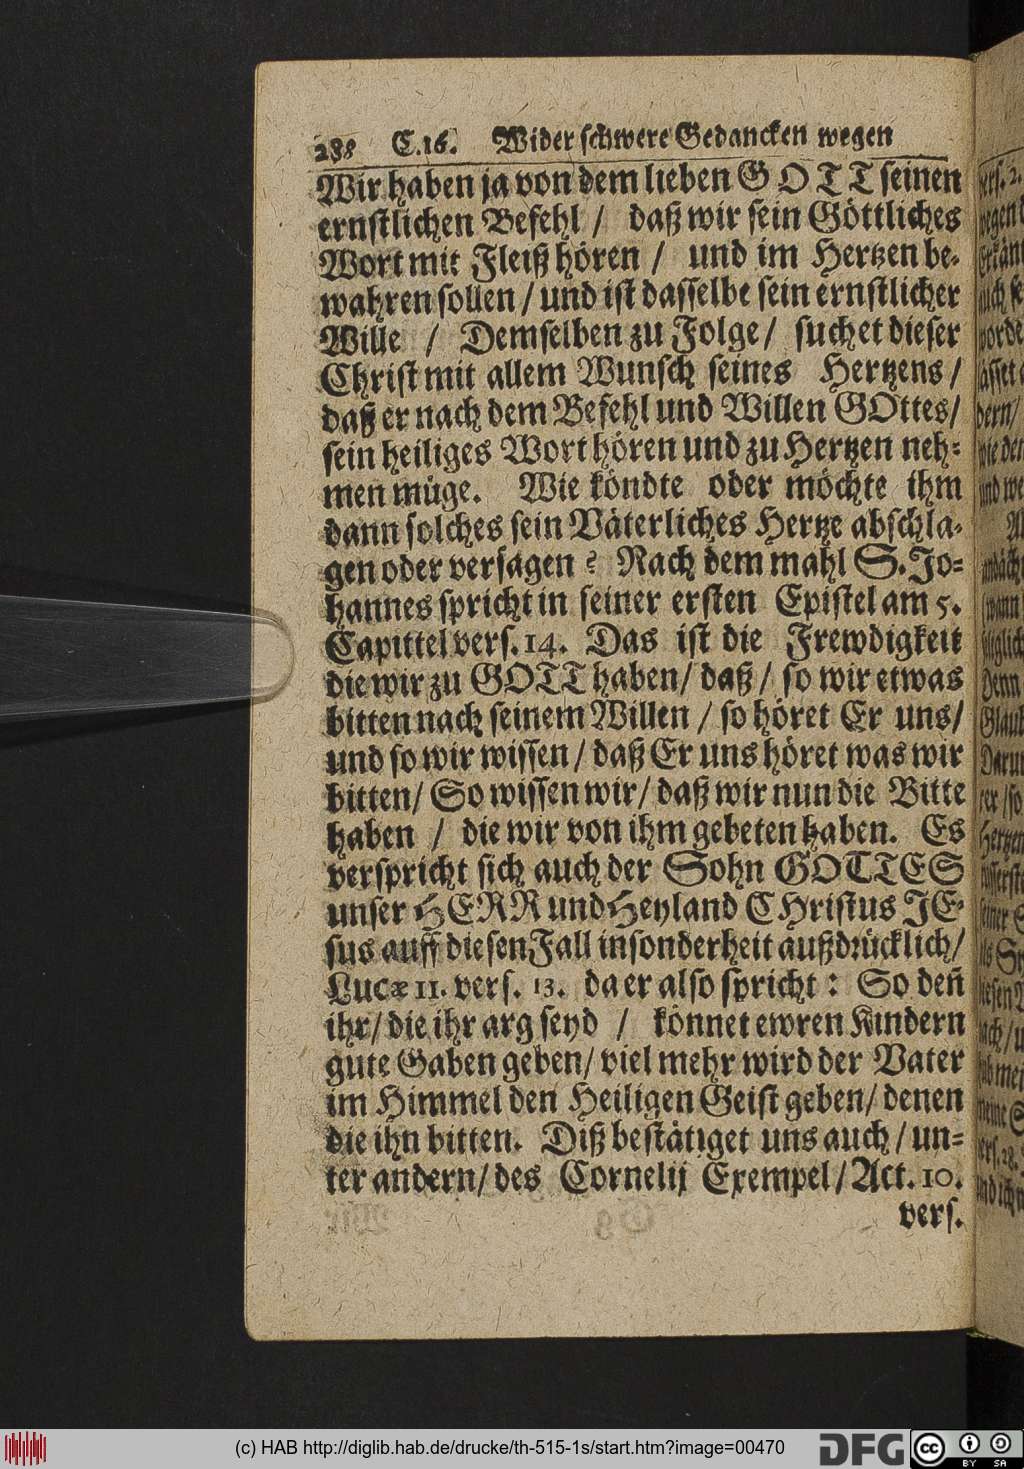 288 C.16. Wider schwere Gedancken wegen
Wir haben ja von dem lieben GOTT seinen
ernstlichen Befehl / daß wir sein Göttliches
Wort mit Fleiß hören / und im Hertzen be-
wahren sollen / und ist dasselbe sein ernstlicher
Wille / Demselben zu Folge / suchet dieser
Christ mit allem Wunsch seines Hertzens /
daß er nach dem Befehl und Willen GOttes /
sein heiliges Wort hören und zu Hertzen neh-
men müge. Wie köndte oder möchte ihm
dann solches sein Väterliches Hertze abschla-
gen oder versagen? Nach dem mahl S. Jo-
hannes spricht in seiner ersten Epistel am 5.
Capittel vers. 14. Das ist die Frewdigkeit
die wir zu GOTT haben / daß / so wir etwas
bitten nach seinem Willen / so höret Er uns /
und so wir wissen / daß Er uns höret was wir
bitten / So wissen wir / daß wir nun die Bitte
haben / die wir von ihm gebeten haben. Es
verspricht sich auch der Sohn GOTTES
unser HERR und Heyland CHristus JE-
sus auff diesen Fall insonderheit außdrücklich /
Lucæ 11. vers. 13. da er also spricht: So deñ
ihr / die ihr arg seyd / könnet ewren Kindern
gute Gaben geben / viel mehr wird der Vater
im Himmel den Heiligen Geist geben / denen
die ihn bitten. Diß bestätiget uns auch / un-
ter andern / des Cornelij Exempel / Act. 10.
vers.
(c) HAB http://diglib.hab.de/drucke/th-515-1s/start.htm?image=00470
DFG
cc BY SA